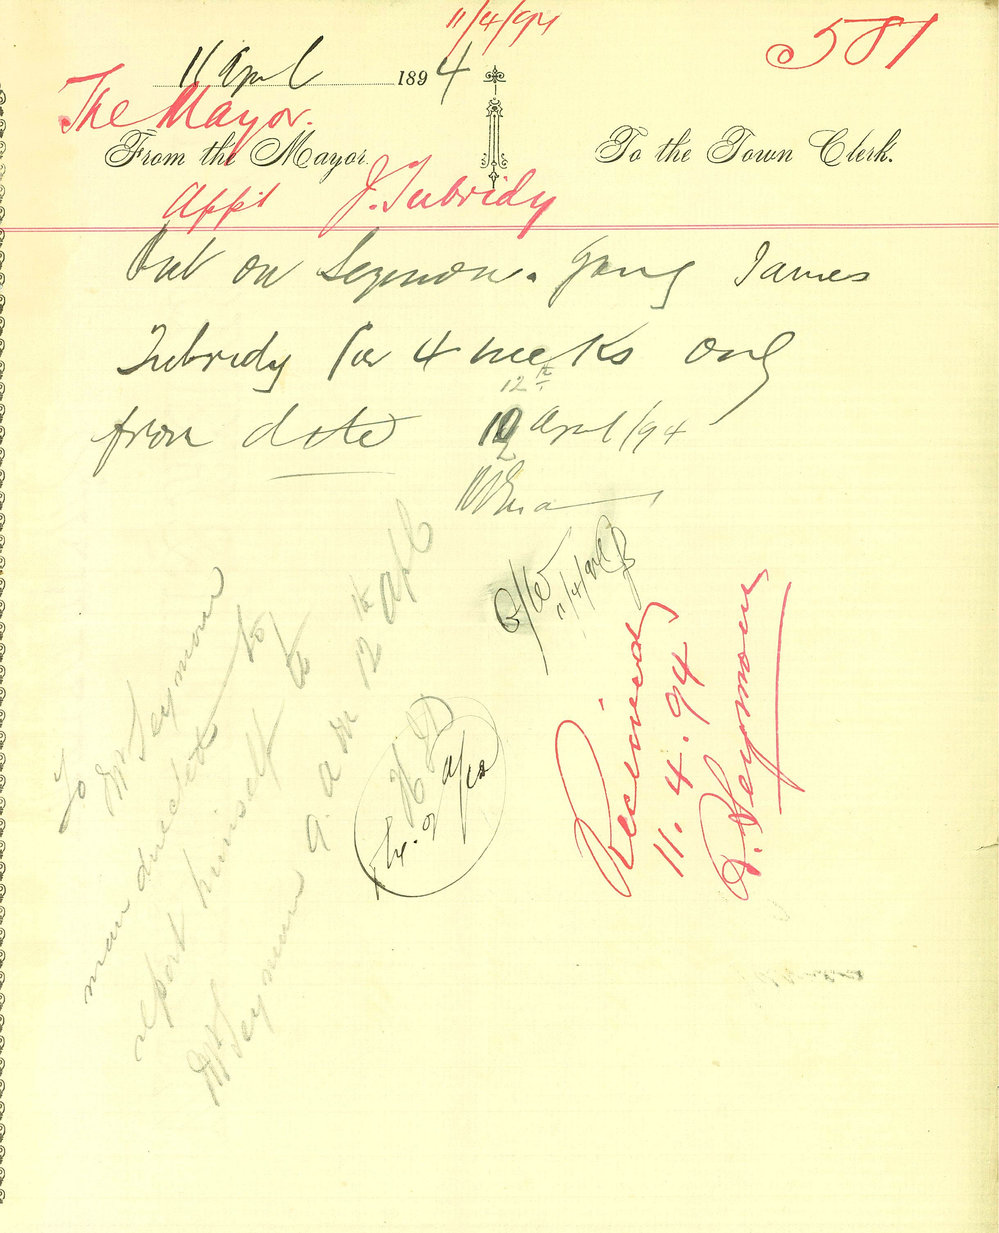 11/4/94
581
11 April 1894
The Mayor.
From the Mayor.
To the Town Clerk.
Appt J. Tubridy
Put on Seymour gang James
Tubridy for 4 weeks only
from date 12 April/94
12th
11/4/94
Received
11.4.94
Seymour
To
Mr Seymour
man directed to
report himself to
Mr Seymour 9 a m 12th Apl